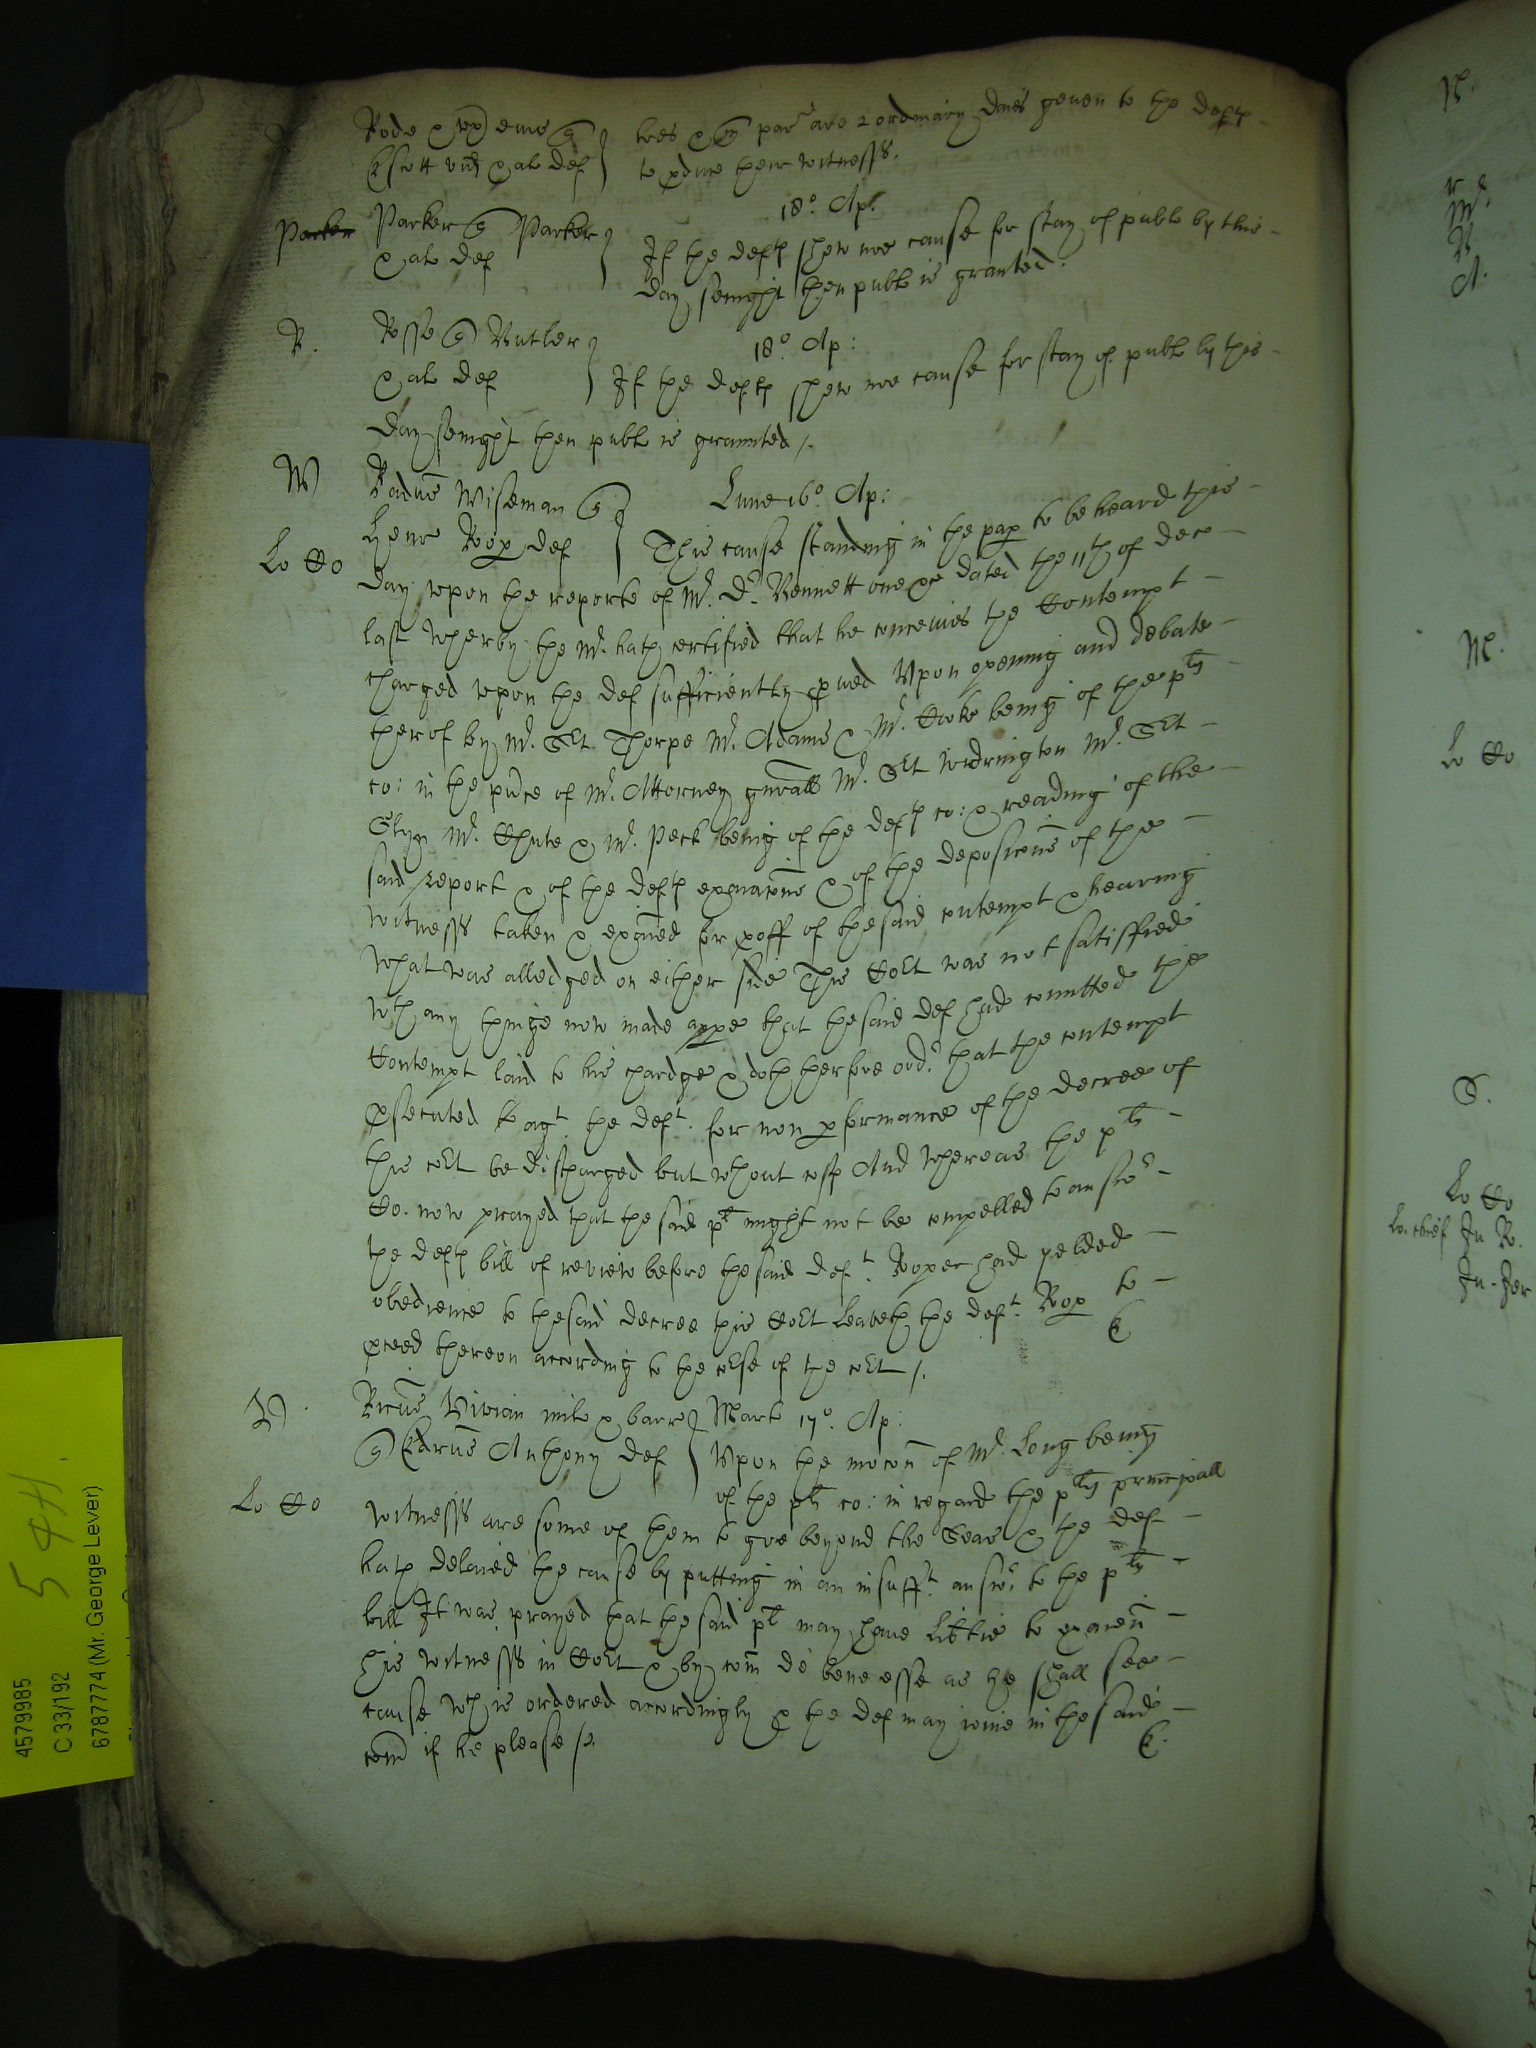 Rode & ux eius q
lres & q par are 2 ordinary daies geven to the deftes
Escott vid & al def
to pduce their witnesses.
18° Ap:
Parker
Parker q Parker
& al def
If the deftes shew noe cause for stay of publ by this
day senight then publ is granted.
18° Ap:
R.
Rosse q Butler
& al def
If the deftes shew noe cause for stay of publ by this
day senight then publ is graunted /.
W
Radus Wiseman q
Lune 16° Ap:
Lo Co
Henr Rop def
This cause standing in the pap to be heard this
day upon the reporte of Mr. Dr. Bennett one &c dated the 11th of Dece
last wherby the Mr. hath certified that he conceives the Contempt
charged upon the def sufficiently pved Upon opening and debate
therof by Mr. Srt Thorpe Mr. Adams & Mr. Cooke being of the plts
co: in the pnce of Mr. Attorney gnrall Mr. Srt Widrington Mr. Srt
Glyn Mr. Chute & Mr. Peck being of the deftes co: & reading of the
said report & of the deftes exacons & of the deposicons of the
witnesses taken & exained for proff of the said contempt & hearing
what was alledged on either side This Cort was not satisfied
wth any thinge now made appe that the said def had comitted the
Contempt laid to his chardge & doth therfore ordr. that the contempt
psecuted agt. the deft. for non pformance of the decree of
this cort be discharged but wthout cosp And whereas the plts
Co. now prayed that the said plt might not be compelled to answr
the deftes bill of review before the said deft. Roper had yelded
obedience to the said decree this Cort leaveth the deft. Rop to
pceed thereon according to the corse of the cort /.
E
V
Ricus Vivian mil & barr
Mart 17° Ap:
q Edrus Anthony def
Upon the mocon of Mr. Long being
of the plts co: in regard the plts principall
Lo Co
witnesses are some of them to goe beyond the Seas & the def
hath delaied the cause by putting in an insufft. answr. to the plts
bill It was prayed that the said plt may have libtie to exaien
his witnesses in Cort & by com de bene esse as he shall see
cause wch is ordered accordingly & the def may joine in the said
com if he please /.
E.
Lo Co
Lo. chief Ju B.
S.
4579985
C 33/192
6787774 (Mr. George Lever)